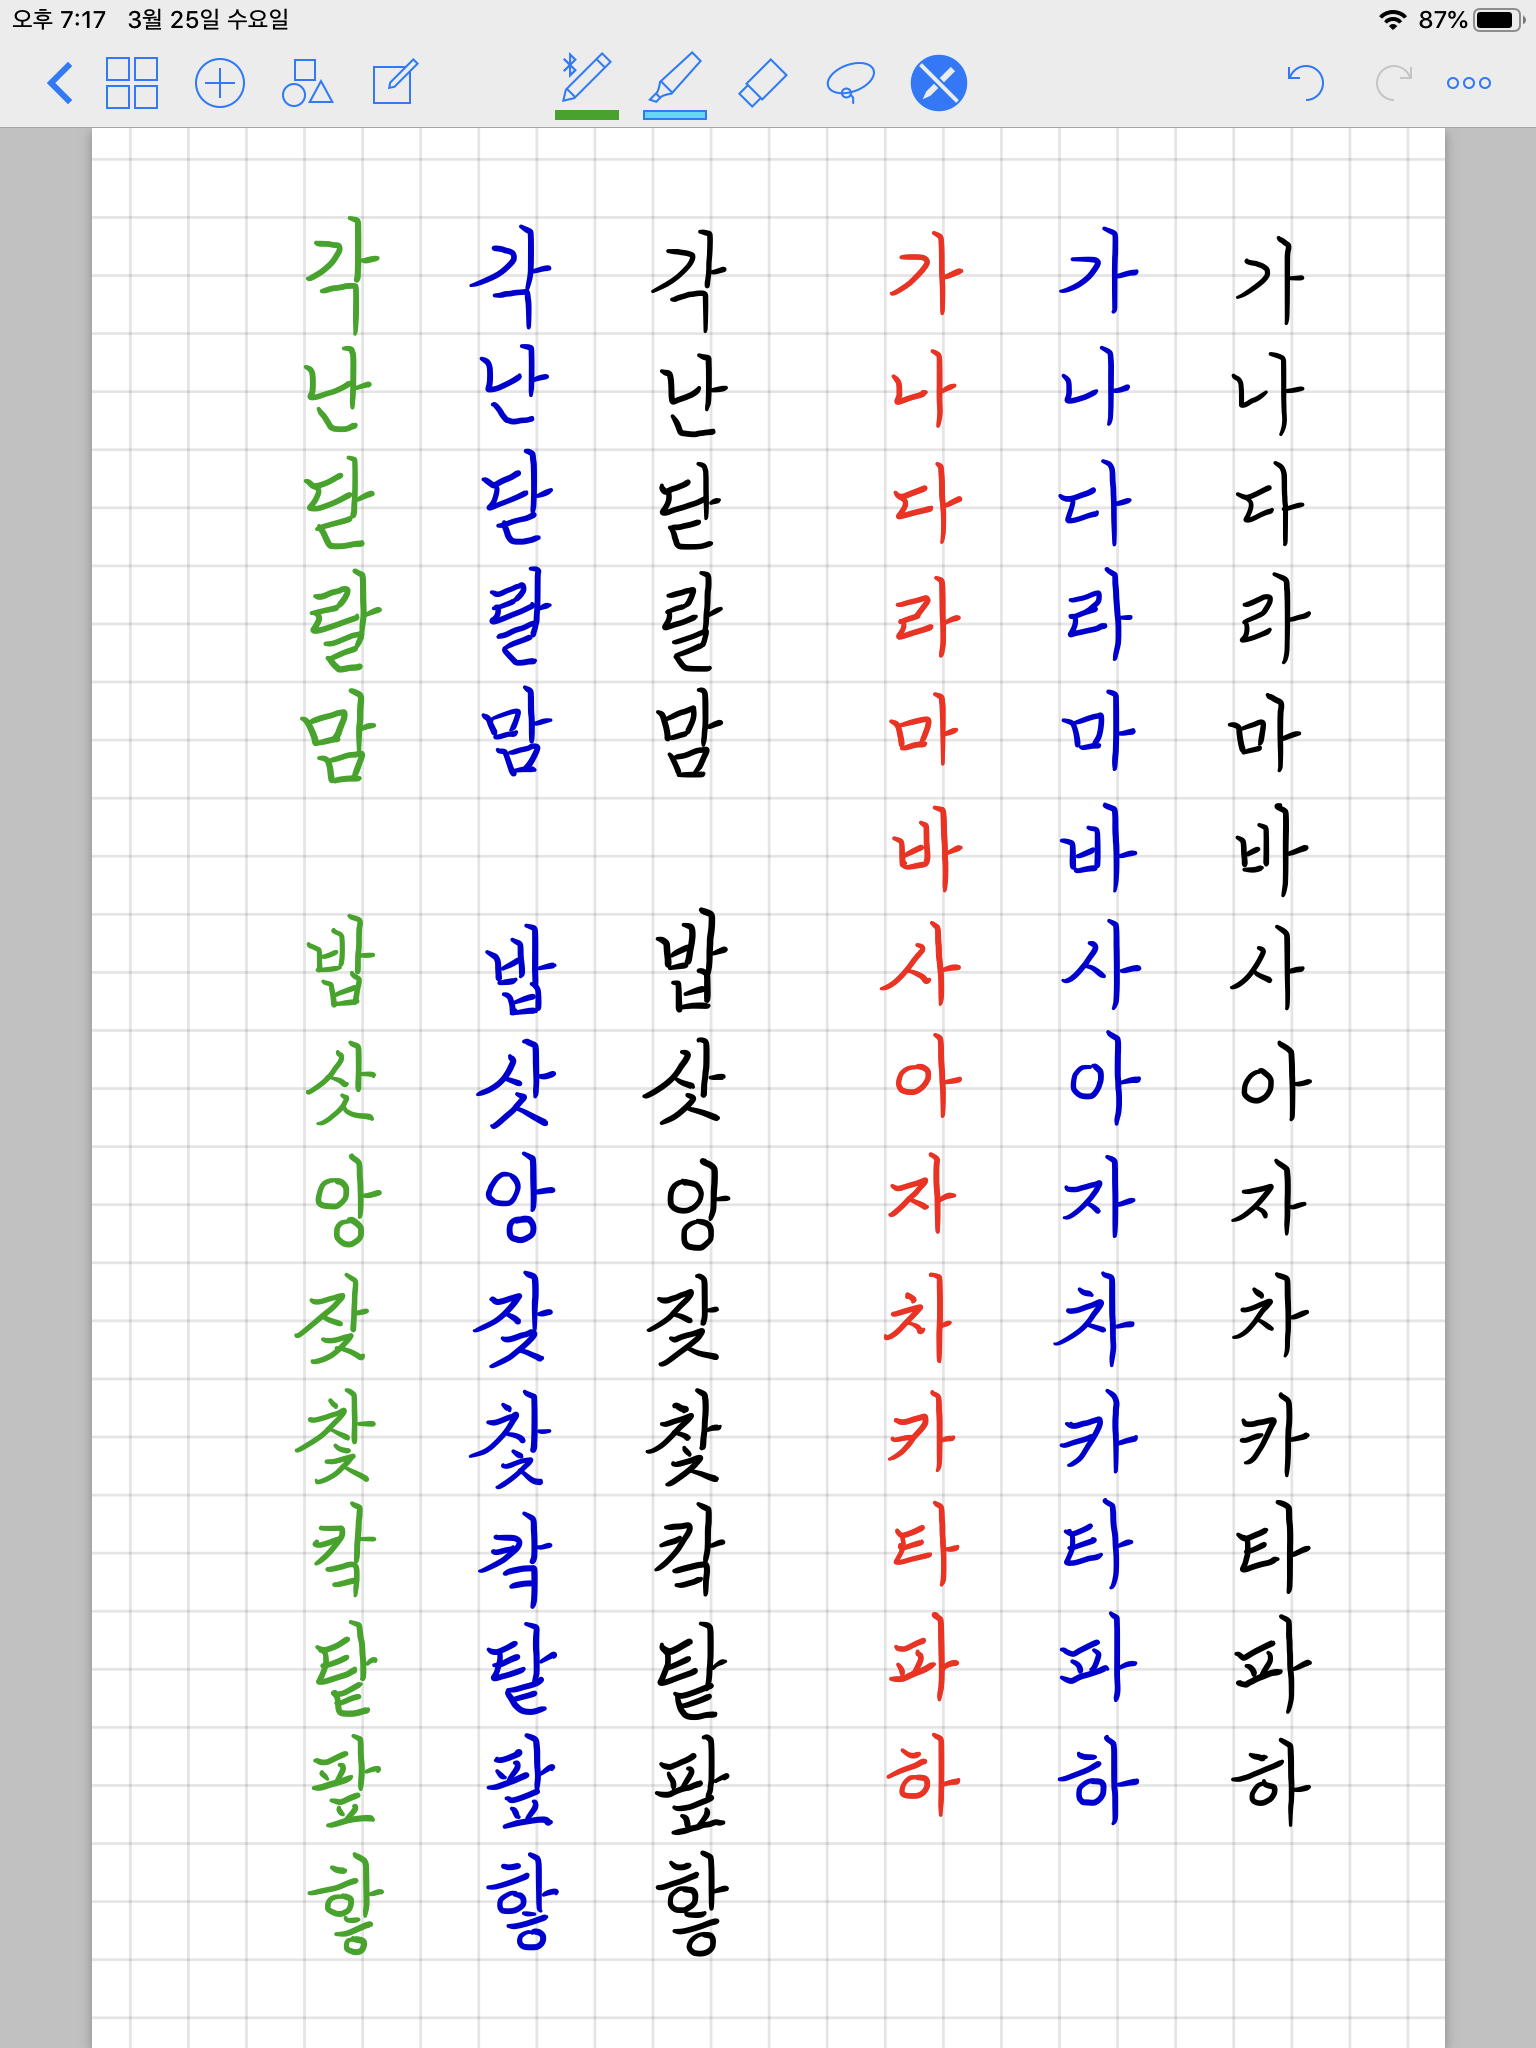 오후 7:17 3월 25일 수요일 87%
각 각 각 가 가 가
난 난 난 나 나 나
닫 닫 닫 다 다 다
랄 랄 랄 라 라 라
맘 맘 맘 마 마 마
바 바 바
밥 밥 밥 사 사 사
삿 삿 삿 아 아 아
앙 앙 앙 자 자 자
잦 잦 잦 차 차 차
찿 찿 찿 카 카 카
캌 캌 캌 타 타 타
탙 탙 탙 파 파 파
팦 팦 팦 하 하 하
핳 핳 핳